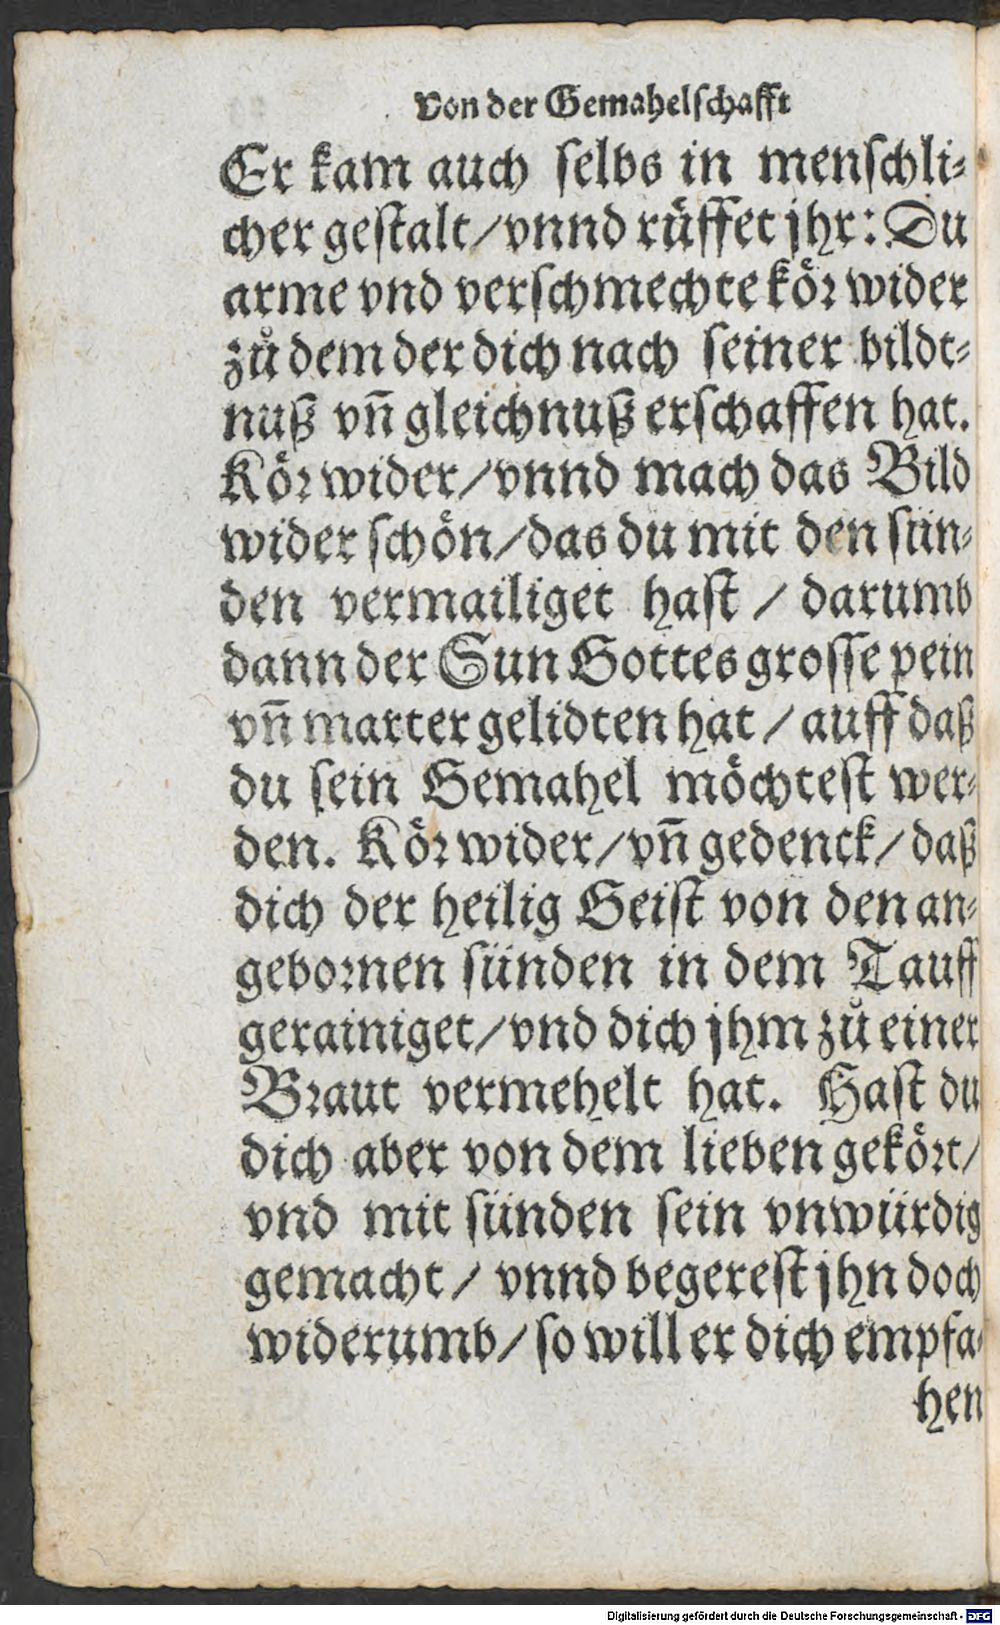 Von der Gemahelschafft
Er kam auch selbs in menschli-
cher gestalt/vnnd rüffet jhr: Du
arme vnd verschmechte kör wider
zů dem der dich nach seiner bildt-
nuß vñ gleichnuß erschaffen hat.
Kör wider/vnnd mach das Bild
wider schön/das du mit den sün-
den vermailiget hast / darumb
dann der Sun Gottes grosse pein
vñ marter gelidten hat / auff daß
du sein Gemahel möchtest wer-
den. Kör wider/vñ gedenck/daß
dich der heilig Geist von den an-
gebornen sünden in dem Tauff
gerainiget/vnd dich jhm zů einer
Braut vermehelt hat. Hast du
dich aber von dem lieben gekört/
vnd mit sünden sein vnwürdig
gemacht / vnnd begerest jhn doch
widerumb/so will er dich empfa-
hen
Digitalisierung gefördert durch die Deutsche Forschungsgemeinschaft - DFG